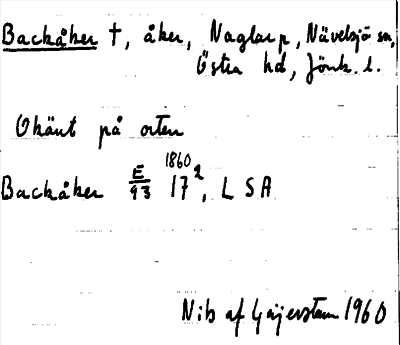 Backåker †, åker, Naglarp, Nävelsjö sn,
Östra hd, Jönk. l.
Okänt på orten
Backåker E/93 1860 17², L S A
Nils af Gäijerstam 1960